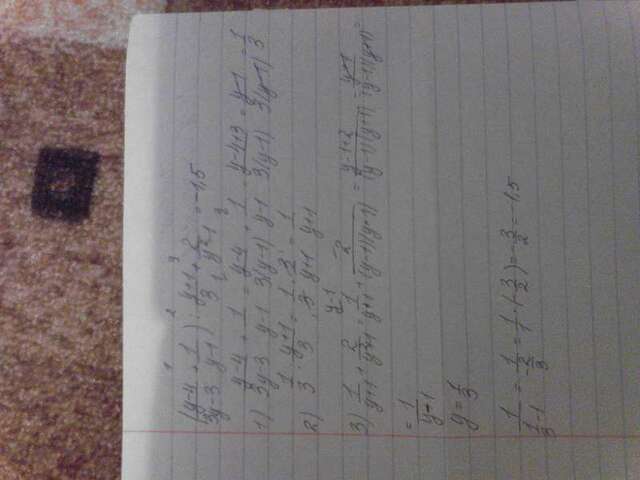 ((y-4)/(3y-3) + 1/(y-1)) : (y+1)/3 + 2/(y²-1) = -1,5
1) (y-4)/(3y-3) + 1/(y-1) = (y-4)/(3(y-1)) + 1/(y-1) = (y-4+3)/(3(y-1)) = (y-1)/(3(y-1)) = 1/3
2) 1/3 : (y+1)/3 = 1/3 · 3/(y+1) = 1/(y+1)
3) 1/(y+1) + 2/(y²-1) = 1/(y+1) + 2/((y-1)(y+1)) = (y-1+2)/((y-1)(y+1)) = (y+1)/((y-1)(y+1)) =
= 1/(y-1)
y = 1/3
1/(1/3 - 1) = 1/(-2/3) = 1/1 · (-3/2) = -3/2 = -1,5